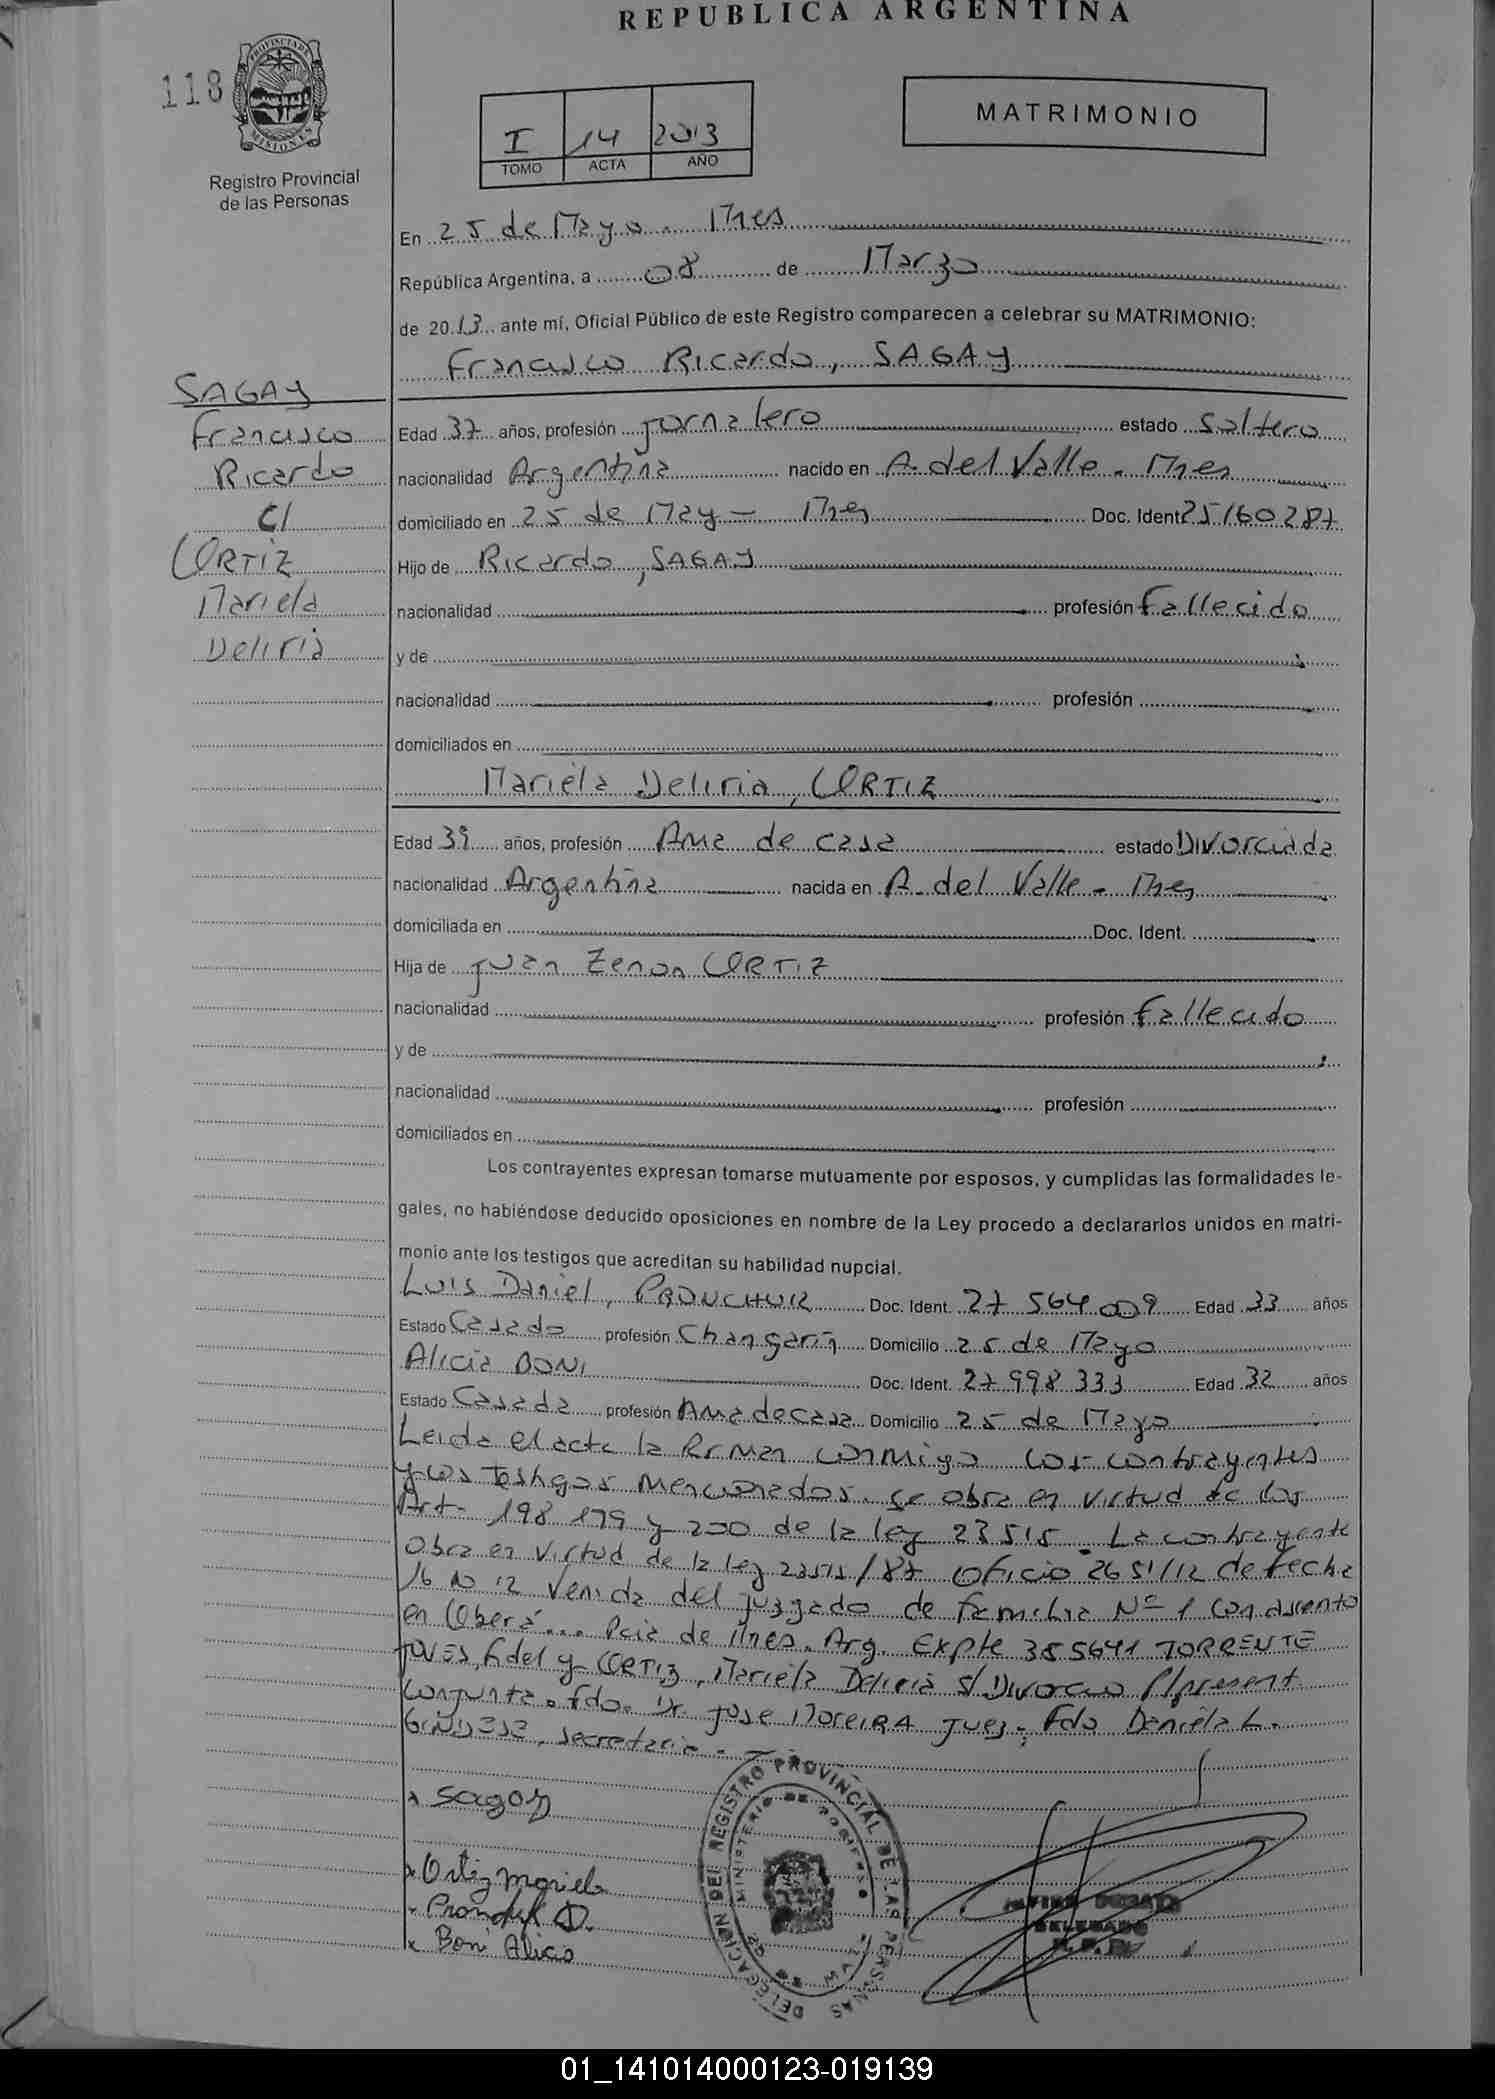 REPUBLICA ARGENTINA
118
PROVINCIA DE
MISIONES
Registro Provincial
de las Personas
I 14 2013
TOMO ACTA AÑO
MATRIMONIO
En 25 de Mayo - Mnes
República Argentina, a 08 de Marzo
de 2013 ante mí, Oficial Público de este Registro comparecen a celebrar su MATRIMONIO:
Francisco Ricardo, SAGAY
SAGAY
Francisco
Ricardo
C/
ORTIZ
Mariela
Deliria
Edad 37 años, profesión Jornalero estado Soltero
nacionalidad Argentina nacido en A. del Valle - Mnes
domiciliado en 25 de May - Mnes Doc. Ident 25160287
Hijo de Ricardo, SAGAY
nacionalidad profesión Fallecido
y de
nacionalidad profesión
domiciliados en
Mariela Deliria, ORTIZ
Edad 39 años, profesión Ama de casa estado Divorciada
nacionalidad Argentina nacida en A. del Valle - Mnes
domiciliada en Doc. Ident.
Hija de Juan Zenon ORTIZ
nacionalidad profesión Fallecido
y de
nacionalidad profesión
domiciliados en
Los contrayentes expresan tomarse mutuamente por esposos, y cumplidas las formalidades le-
gales, no habiéndose deducido oposiciones en nombre de la Ley procedo a declararlos unidos en matri-
monio ante los testigos que acreditan su habilidad nupcial.
Luis Daniel, Doc. Ident. 27 564 009 Edad 33 años
Estado Casado profesión Changarin Domicilio 25 de Mayo
Alicia BONI Doc. Ident. 27 998 333 Edad 32 años
Estado Casada profesión Ama de casa Domicilio 25 de Mayo
Leida el acta la firman conmigo los contrayentes
y los testigos mencionados. Se obra en virtud de los
Art- 198 199 y 200 de la ley 23515. La contrayente
Obra en virtud de la ley 23515/87 Oficio 2651/12 de fecha
16 12 Venida del Juzgado de familia Nº 1 con asiento
en Oberá... Pcia de Mnes. Arg. Expte 385641 TORRENTE
Fidel y ORTIZ, Mariela Deliria S/ Divorcio P/present
Conjunta. Fdo. Dr. Jose MoreiRA Juez. Fdo Daniela L.
secretaria -
x Sagay
x Ortiz Mariela
x D.
x Boni Alicia
DELEGACION DEL REGISTRO PROVINCIAL DE LAS PERSONAS
MINISTERIO DE GOBIERNO
DELEGADO
01_141014000123-019139